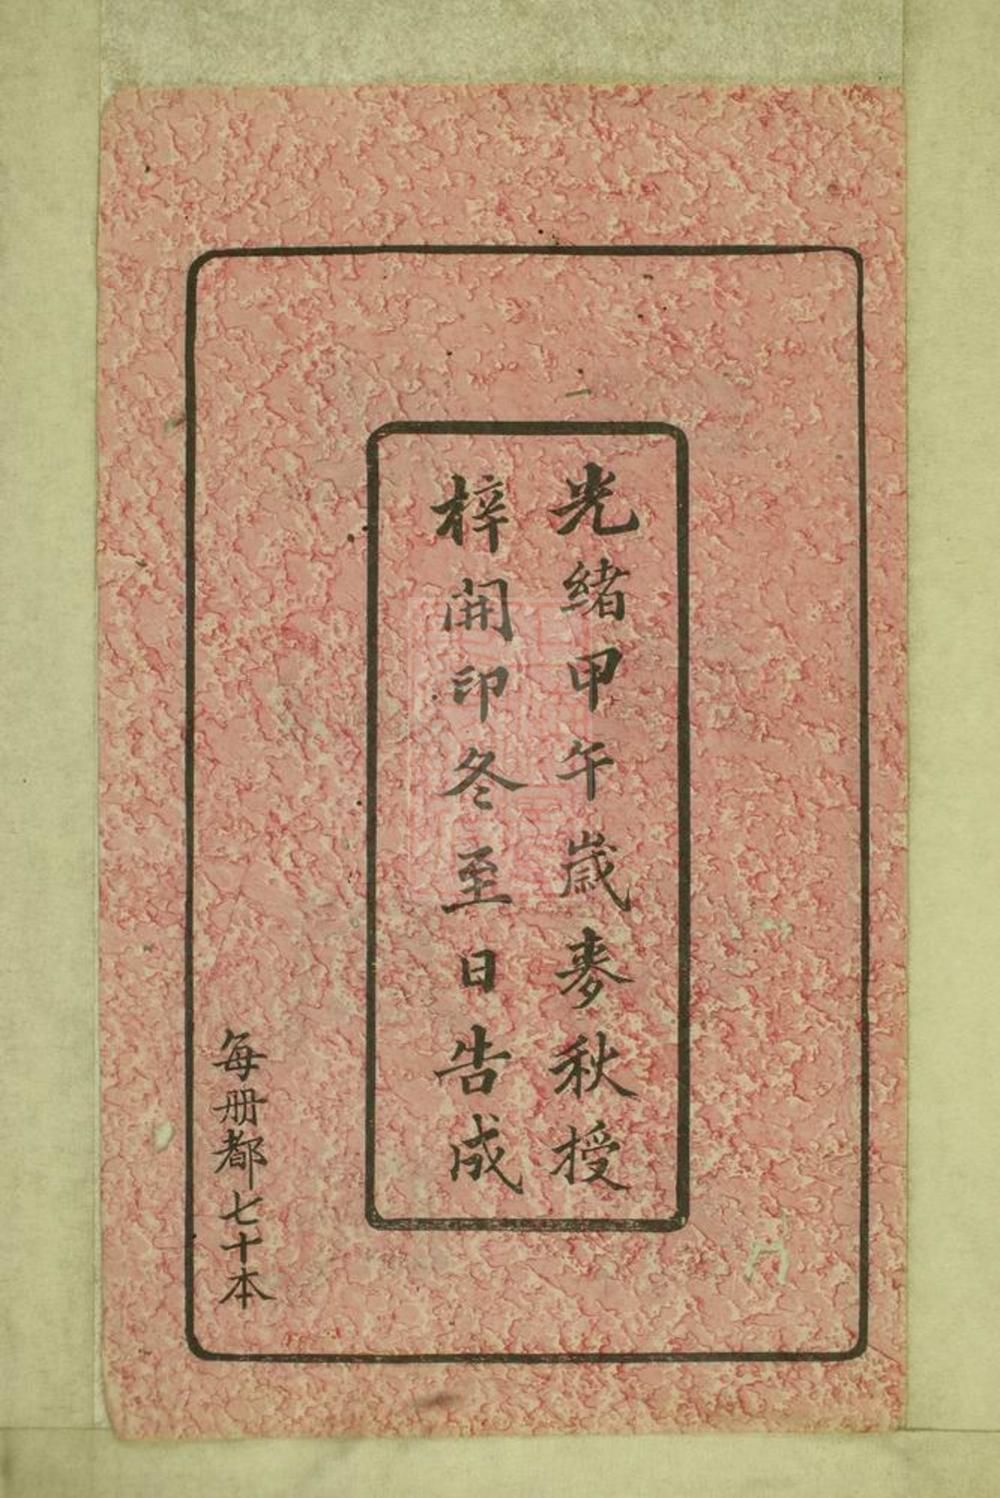 光緒甲午歲麥秋授
梓開印冬至日告成
每冊都七十本